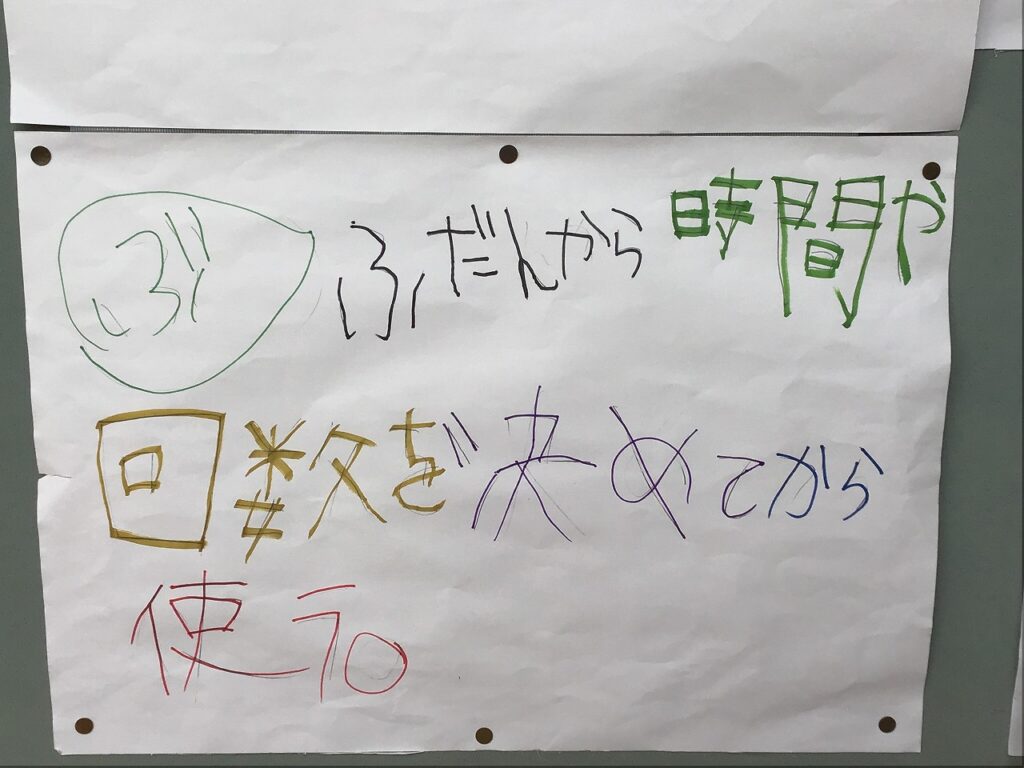 ぶ ふだんから時間や
回数を決めてから
使う。